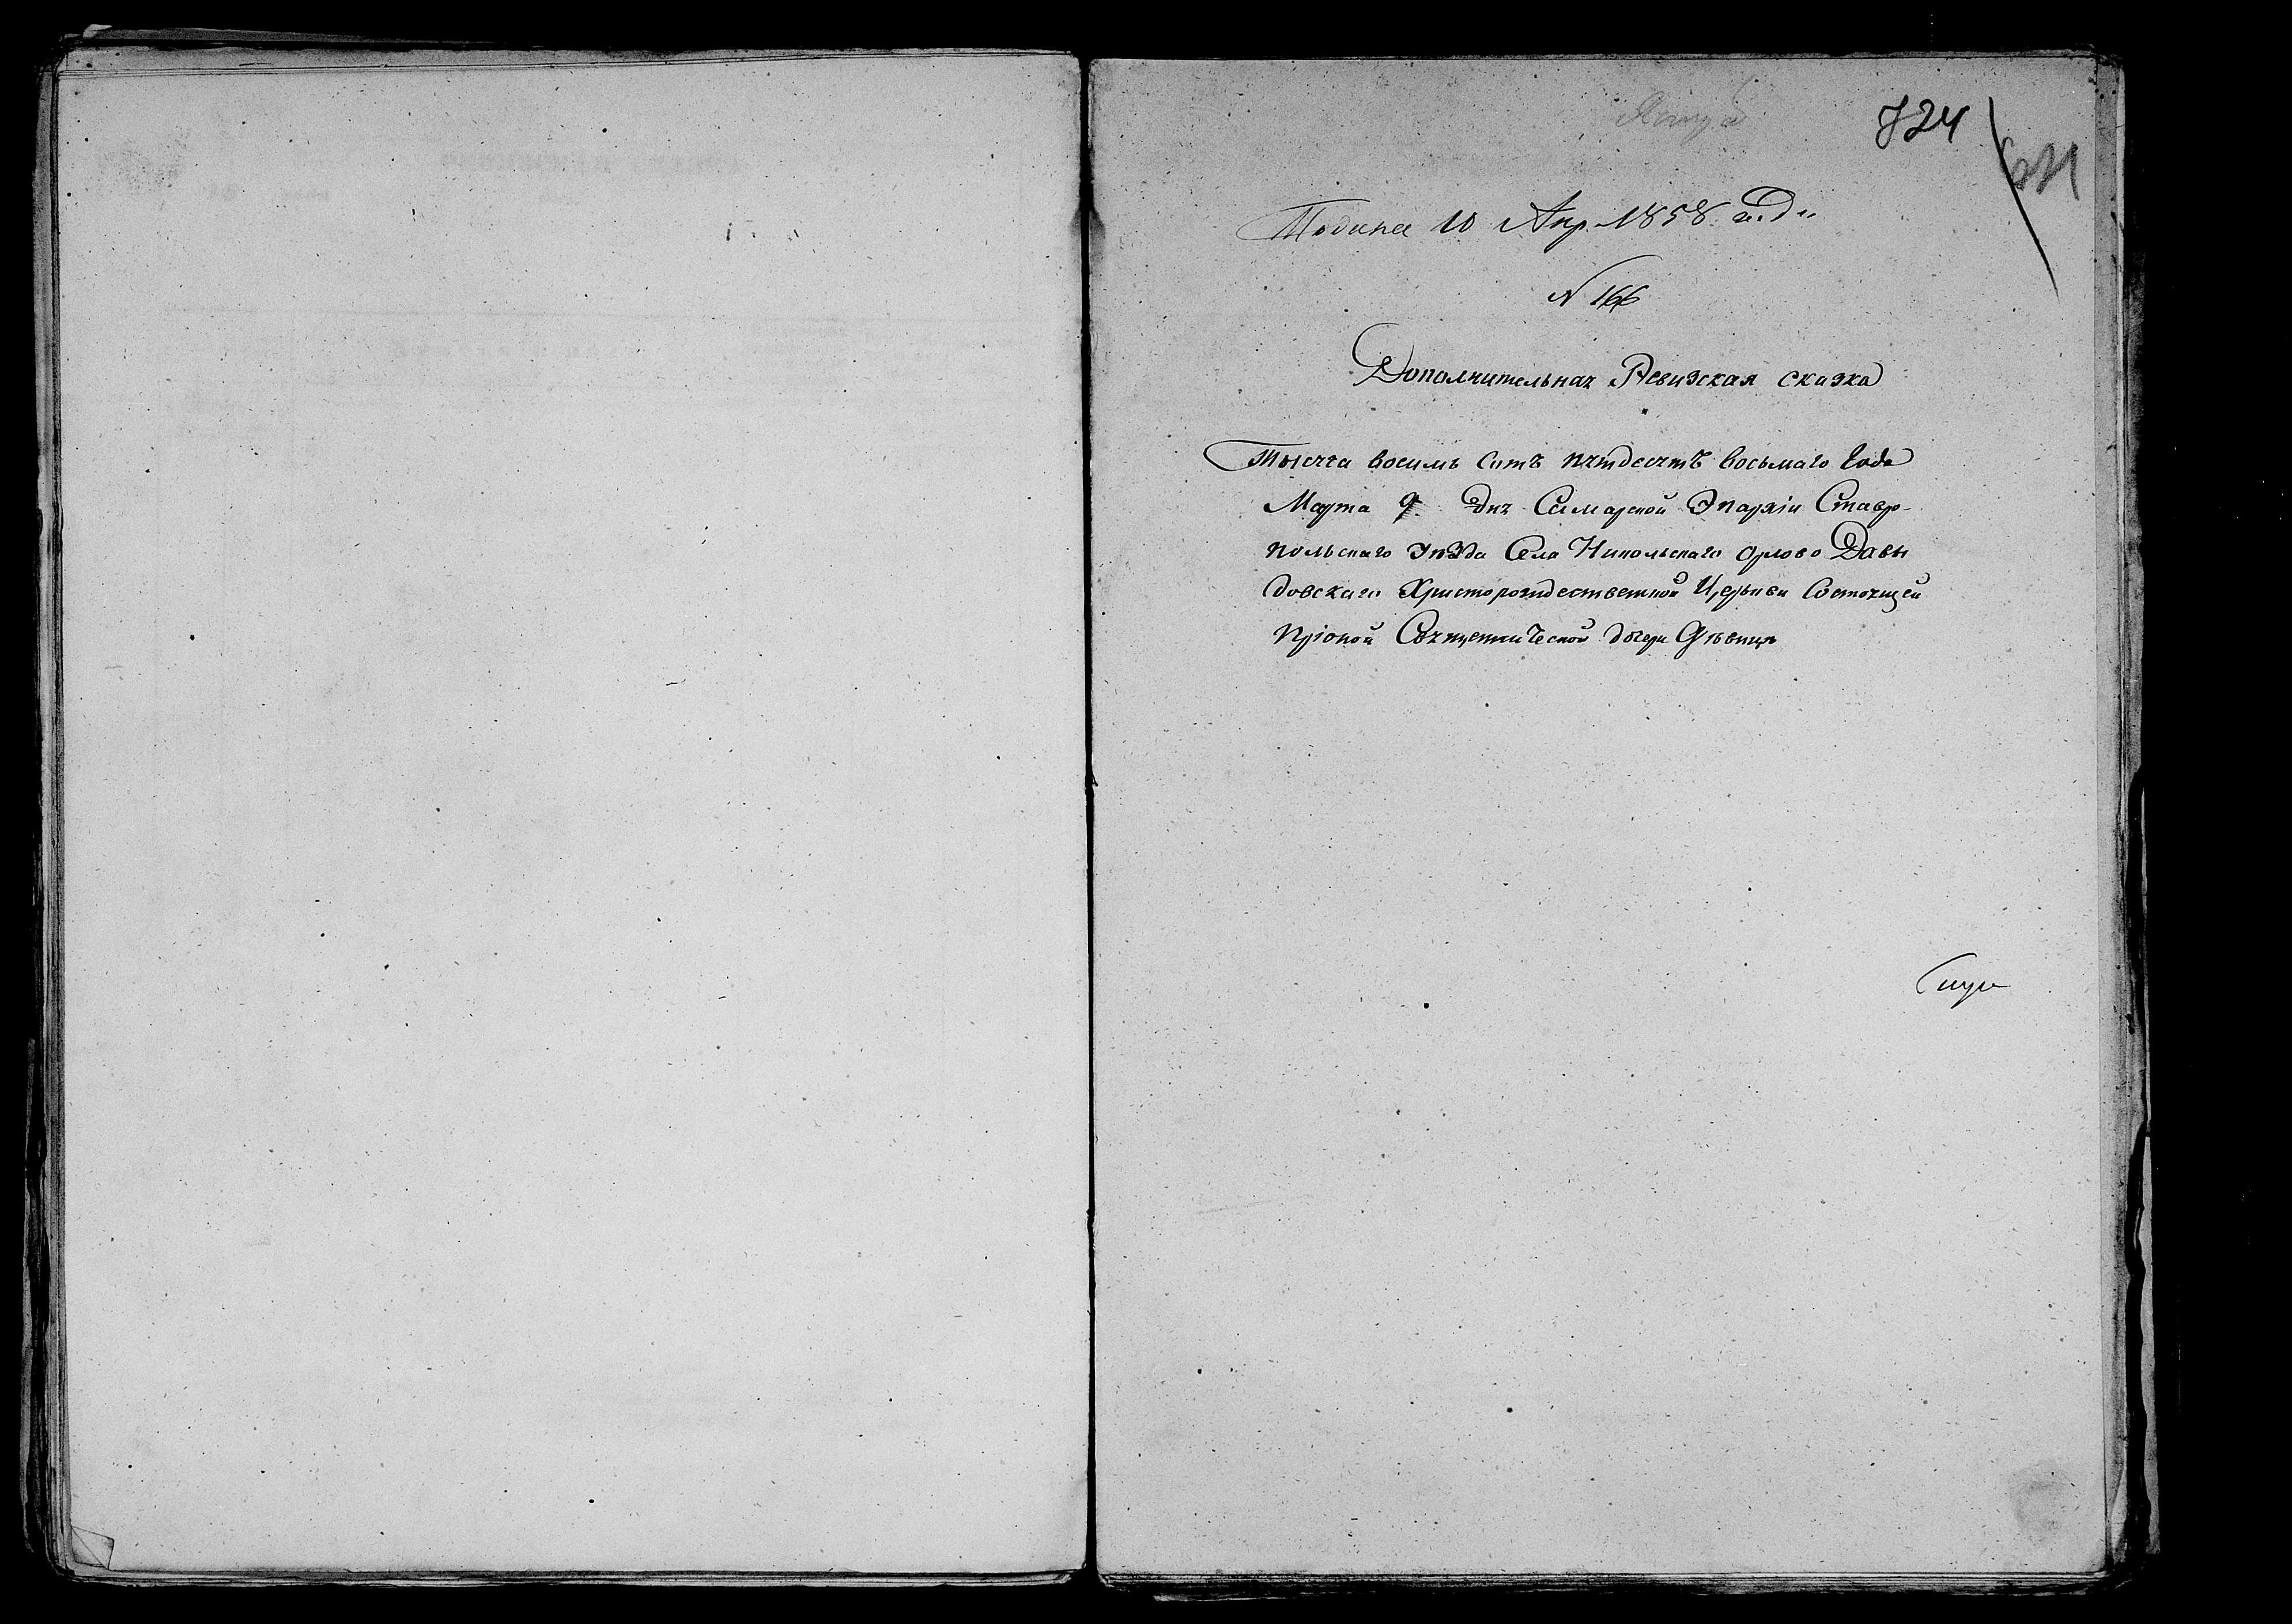 724
Подана 10 Апр. 1858 года
N 166
Дополнительная Ревизская сказка
Тысяча восимь сотъ пятдесятъ восьмаго года
Марта 9 дня Самарской Эпархіи Ставро-
польскаго уѣзда Села Никольскаго Орлово Давы
довскаго Христорождественной Церкви состоящей
при оной Священнической дочери Дѣвицѣ